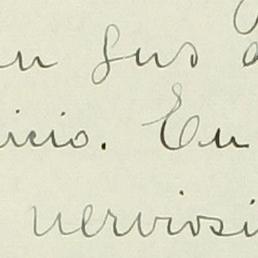 en sus
icio. En
nerviosi